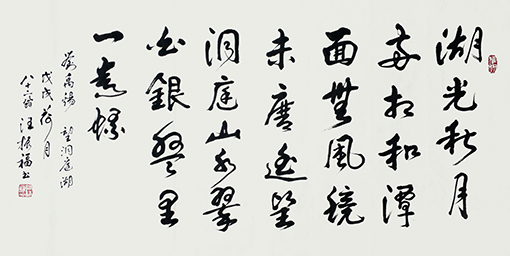 湖光秋月
两相和潭
面無風鏡
未磨遥望
洞庭山水翠
白銀盤里
一青螺
劉禹錫 望洞庭湖
戊戌荷月
八十 翁 汪振福书